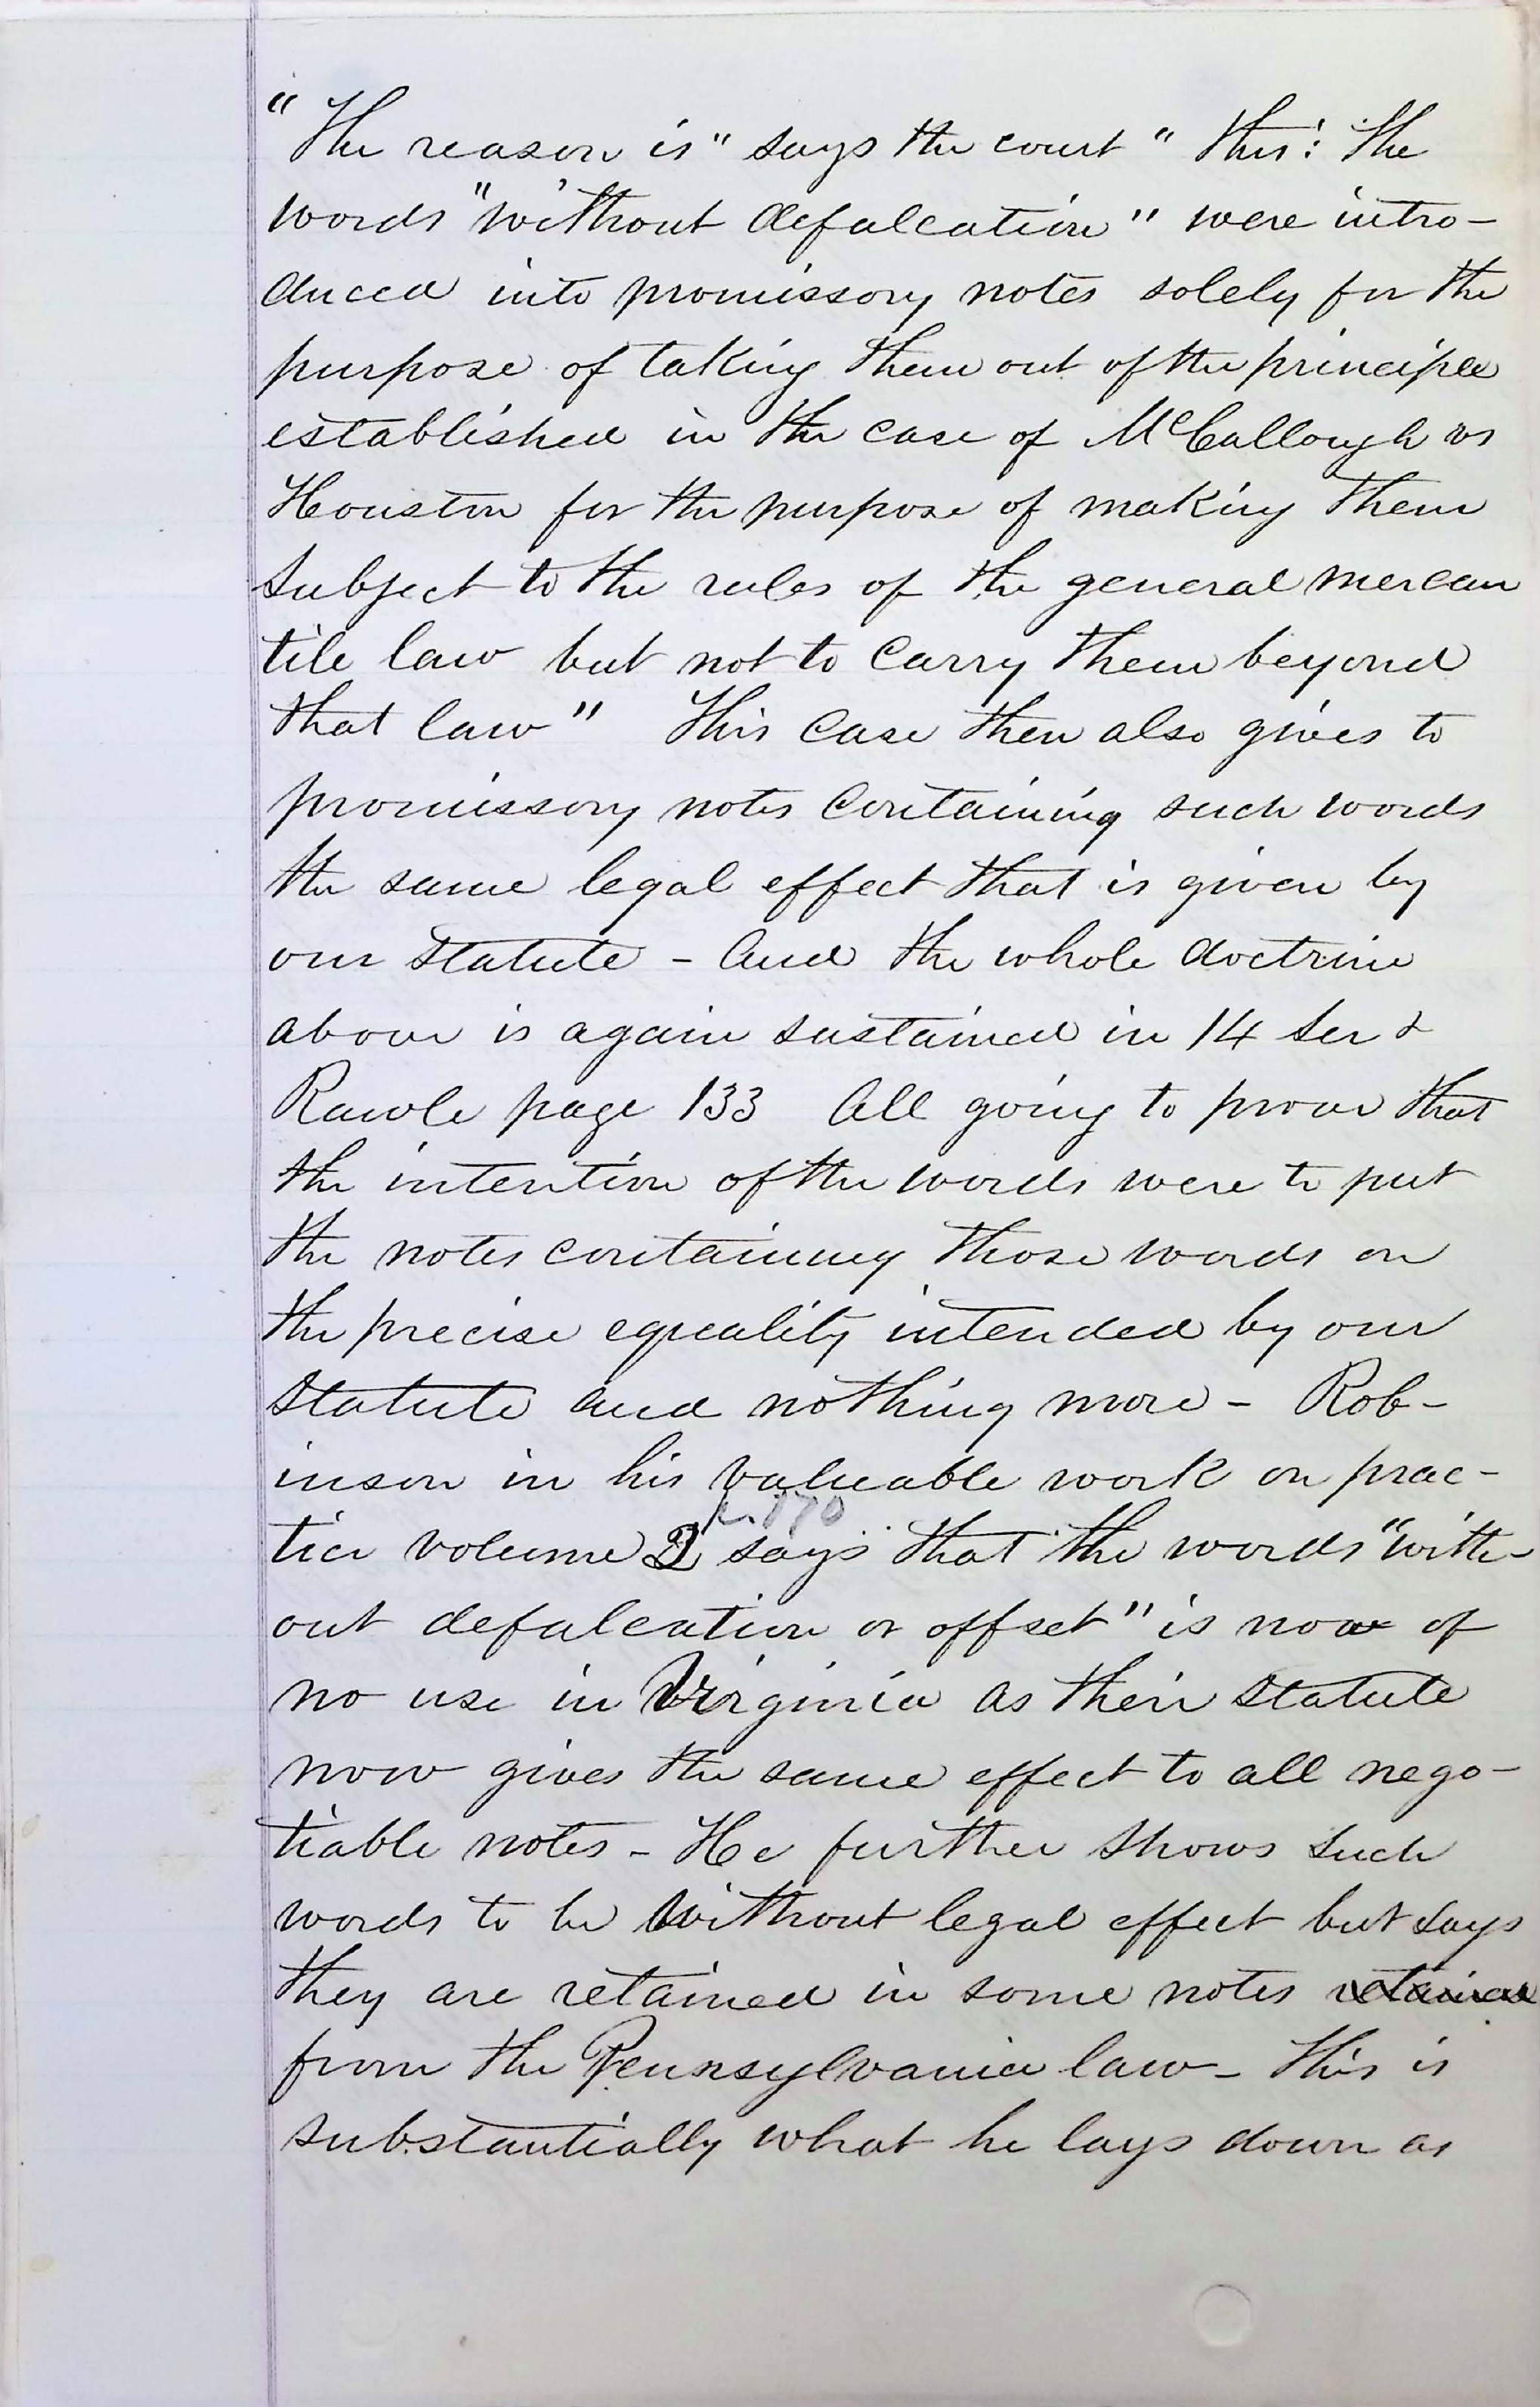 "The reason is" says the court "this: The
words "without defalcation" were intro-
duced into promissory notes solely for the
purpose of taking them out of the principle
established in the case of McCallough vs
Houston for the purpose of making them
subject to the rules of the general mercan
tile law but not to carry them beyond
that law" This case then also gives to
promissory notes containing such words
the same legal effect that is given by
our statute - And the whole doctrine
above is again sustained in 14 Ser &
Rawle page 133 All going to prove that
the intention of the words were to put
the notes containing those words on
the precise equality intended by our
statute and nothing more - Rob-
inson in his valuable work on prac-
tice volume 2 says that the words "with-
out defalcation or offset" is now of
no use in Virginia as their statute
now gives the same effect to all nego-
tiable notes - He further shows such
words to be without legal effect but says
they are retained in some notes retained
from the Pennsylvania law - This is
substantially what he lays down as